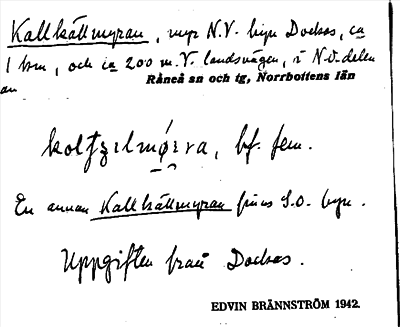 Kallkällmyran, myr N.V. byn Dockas, ca
1 km, och ca 200 m. V. landsvägen, i N.v. delen
av Råneå sn och tg, Norrbottens län
bf. fem.
En annan Kallkällmyran finns S.O. byn.
Uppgiften från Dockas.
EDVIN BRÄNNSTRÖM 1942.